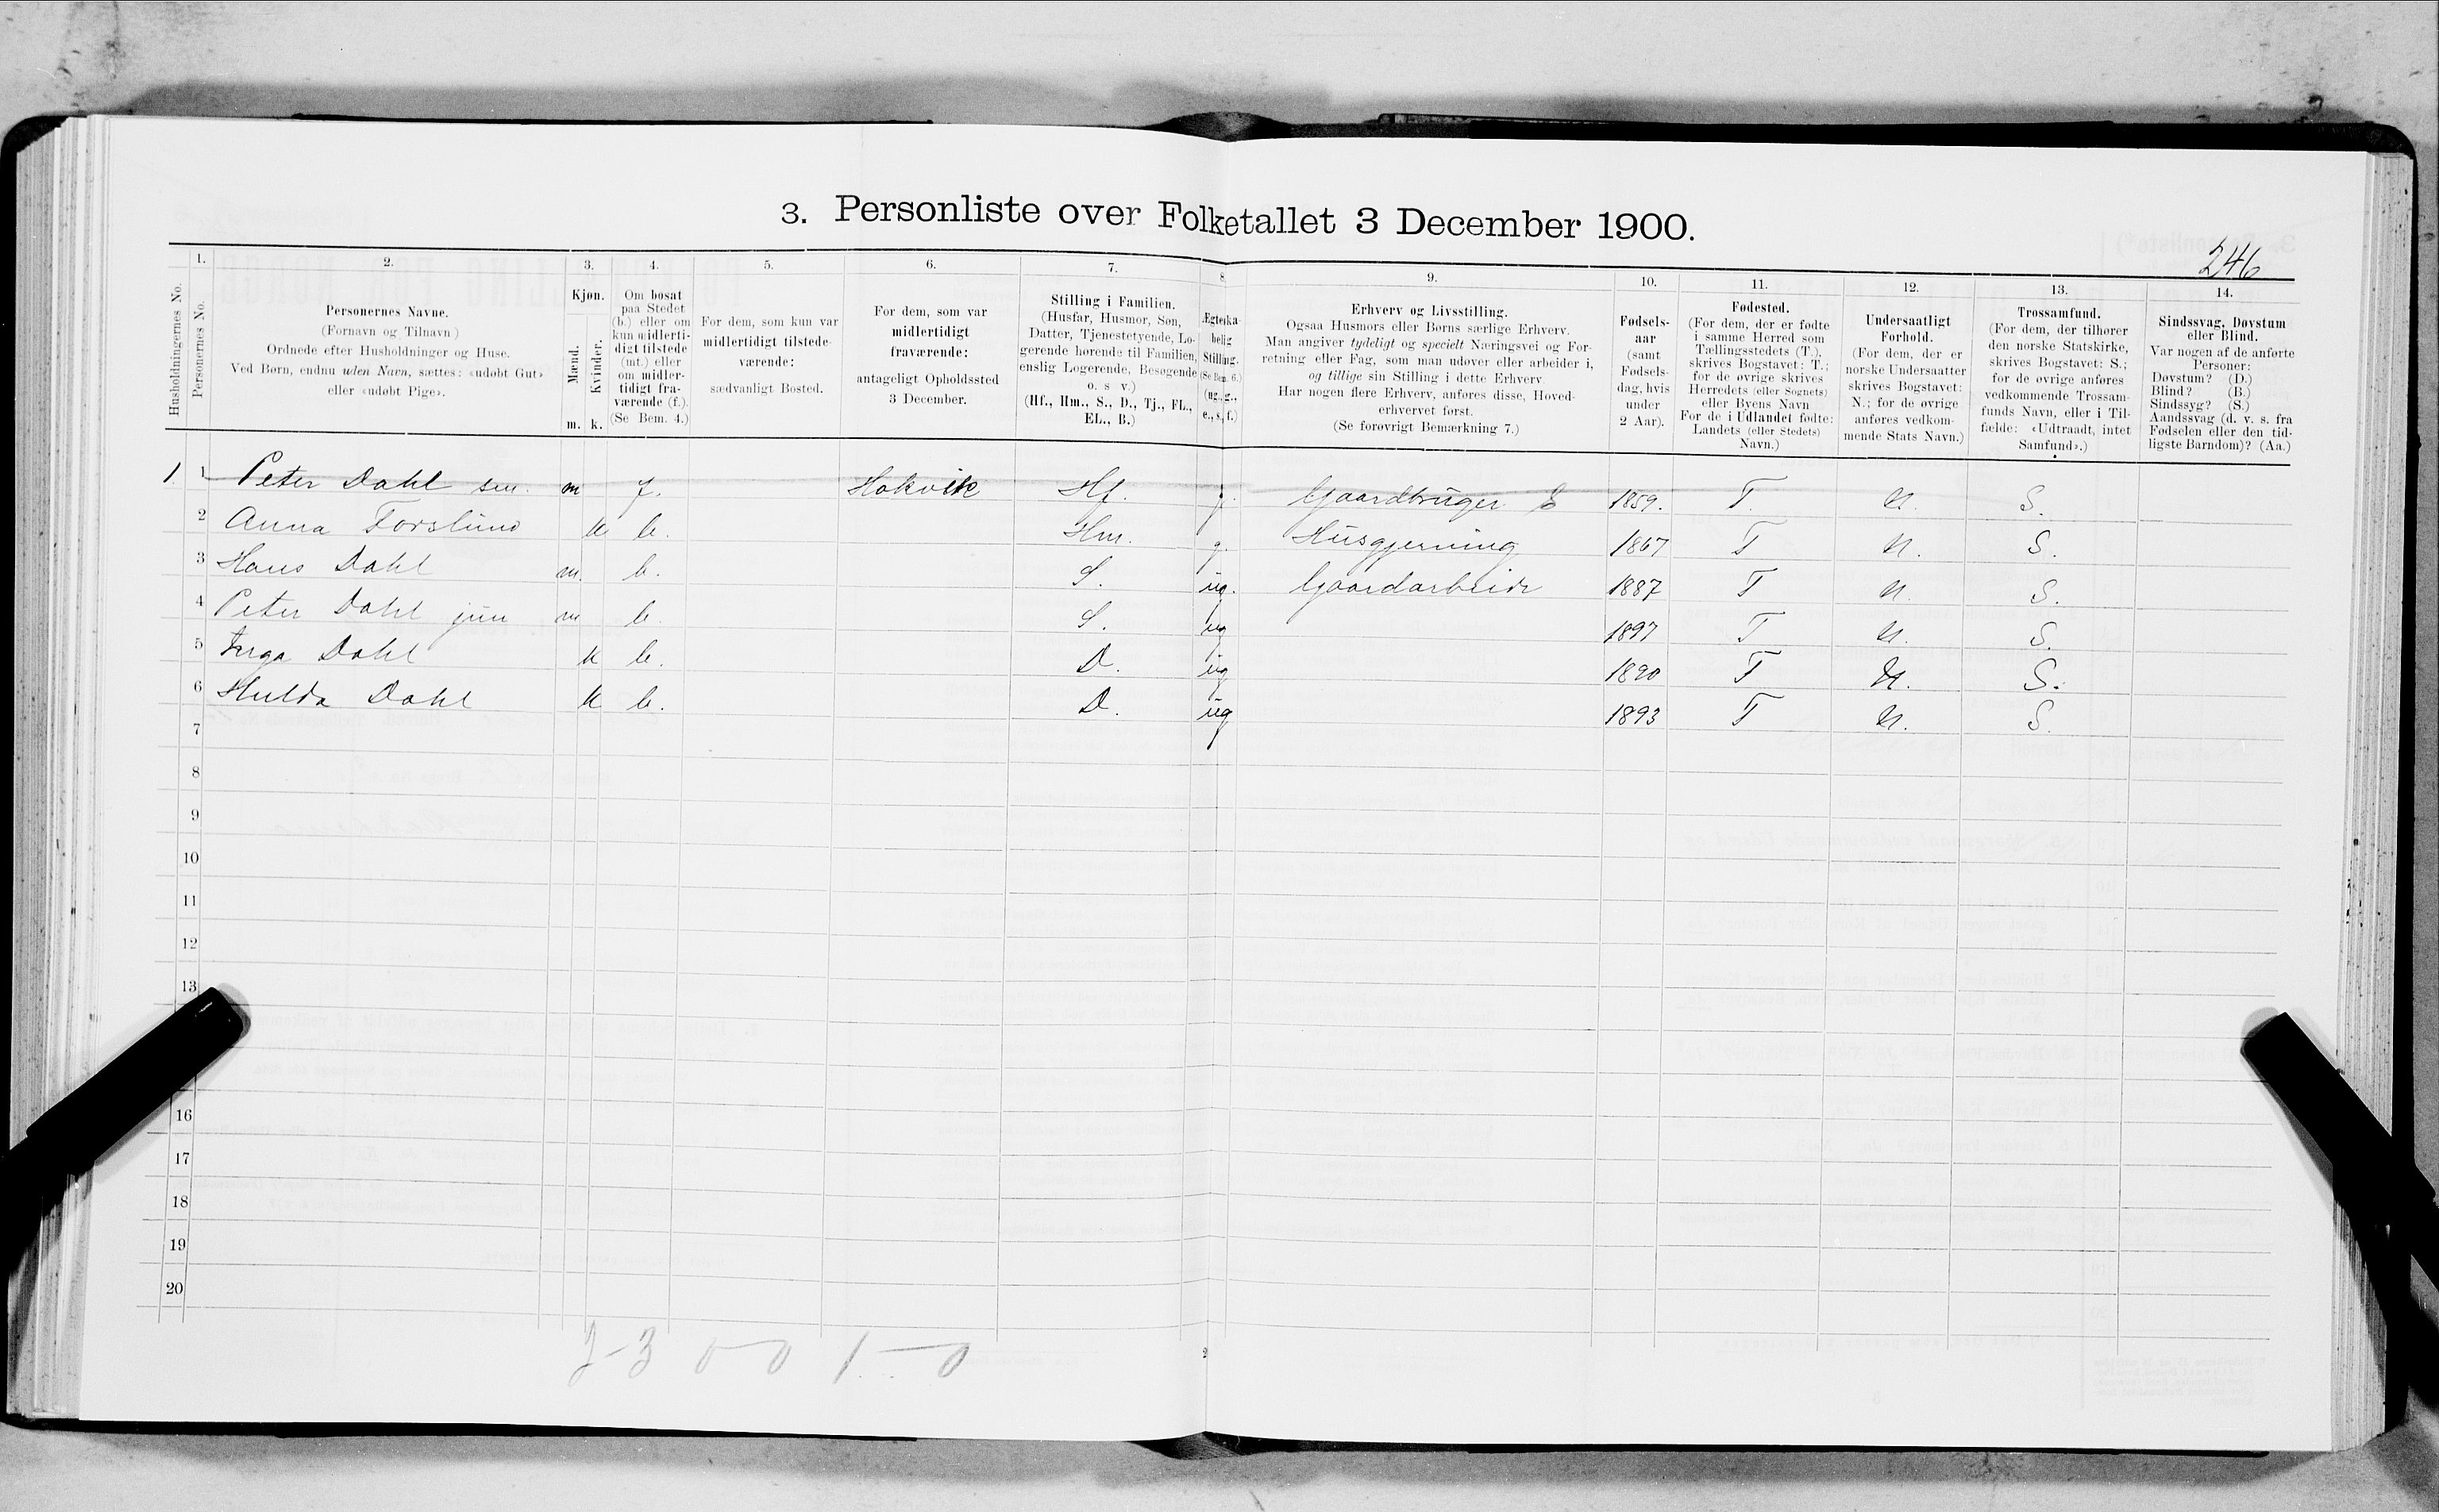 3. Personliste over Folketallet 3 December 1900.
246
1. 2. 3. 4. 5. 6. 7. 8. 9. 10. 11. 12. 13. 14.
Husholdningernes No.
Personernes No.
Personernes Navne.
(Fornavn og Tilnavn)
Ordnede efter Husholdninger og Huse.
Ved Børn, endnu uden Navn, sættes: «udøbt Gut»
eller «udøbt Pige».
Kjøn.
Mænd.
Kvinder.
m. k.
Om bosat
paa Stedet
(b.) eller om
kun midlerti-
digt tilstede
(mt.) eller
om midler-
tidigt fra-
værende (f.).
(Se Bem. 4.)
For dem, som kun var
midlertidigt tilstede-
værende:
sædvanligt Bosted.
For dem, som var
midlertidigt
fraværende:
antageligt Opholdssted
3 December.
Stilling i Familien.
(Husfar, Husmor, Søn,
Datter, Tjenestetyende, Lo-
gerende hørende til Familien,
enslig Logerende, Besøgende
o. s v.)
(Hf., Hm., S., D., Tj., FL.,
EL., B.)
Ægteska-
belig
Stilling.
(Se Bem. 6.)
(ug., g.,
e., s., f.)
Erhverv og Livsstilling.
Ogsaa Husmors eller Børns særlige Erhverv.
Man angiver tydeligt og specielt Næringsvei og For-
retning eller Fag, som man udøver eller arbeider i,
og tillige sin Stilling i dette Erhverv
Har nogen flere Erhverv, anføres disse, Hoved-
erhvervet først.
(Se forøvrigt Bemærkning 7.)
Fødsels-
aar
(samt
Fødsels-
dag, hvis
under
2 Aar).
Fødested.
(For dem, der er fødte
i samme Herred som
Tællingsstedets (T.),
skrives Bogstavet: T.;
for de øvrige skrives
Herredets (eller Sognets)
eller Byens Navn
For de i Udlandet fødte:
Landets (eller Stedets)
Navn.)
Undersaatligt
Forhold.
(For dem, der er
norske Undersaatter
skrives Bogstavet:
N.; for de øvrige
anføres vedkom-
mende Stats Navn.)
Trossamfund.
(For dem, der tilhører
den norske Statskirke,
skrives Bogstavet: S.;
for de øvrige anføres
vedkommende Trossam-
funds Navn, eller i Til-
fælde: «Udtraadt, intet
Samfund».)
Sindssvag, Døvstum
eller Blind.
Var nogen af de anførte
Personer:
Døvstum? (D.)
Blind? (B.)
Sindssyg? (S.)
Aandssvag (d. v. s. fra
Fødselen eller den tid-
ligste Barndom)? (Aa.)
1 1 Peter Dahl sen. m f. Hokvik Hf. g. Gaardbruger S 1859. T. N. S.
2 Anna Forslund k b. Hm. g. Husgjerning 1867 T N. S.
3 Hans Dahl m. b. S. ug. Gaardarbeide 1887 T N. S.
4 Peter Dahl jun m b. S. ug 1897 T N. S.
5 Inga Dahl k b. D. ug 1890 T N. S.
6 Hulda Dahl k b. D. ug 1893 T N. S.
7
8
9
10
11
12
13
16
17
18
19
20
2-3 0-0 1-0